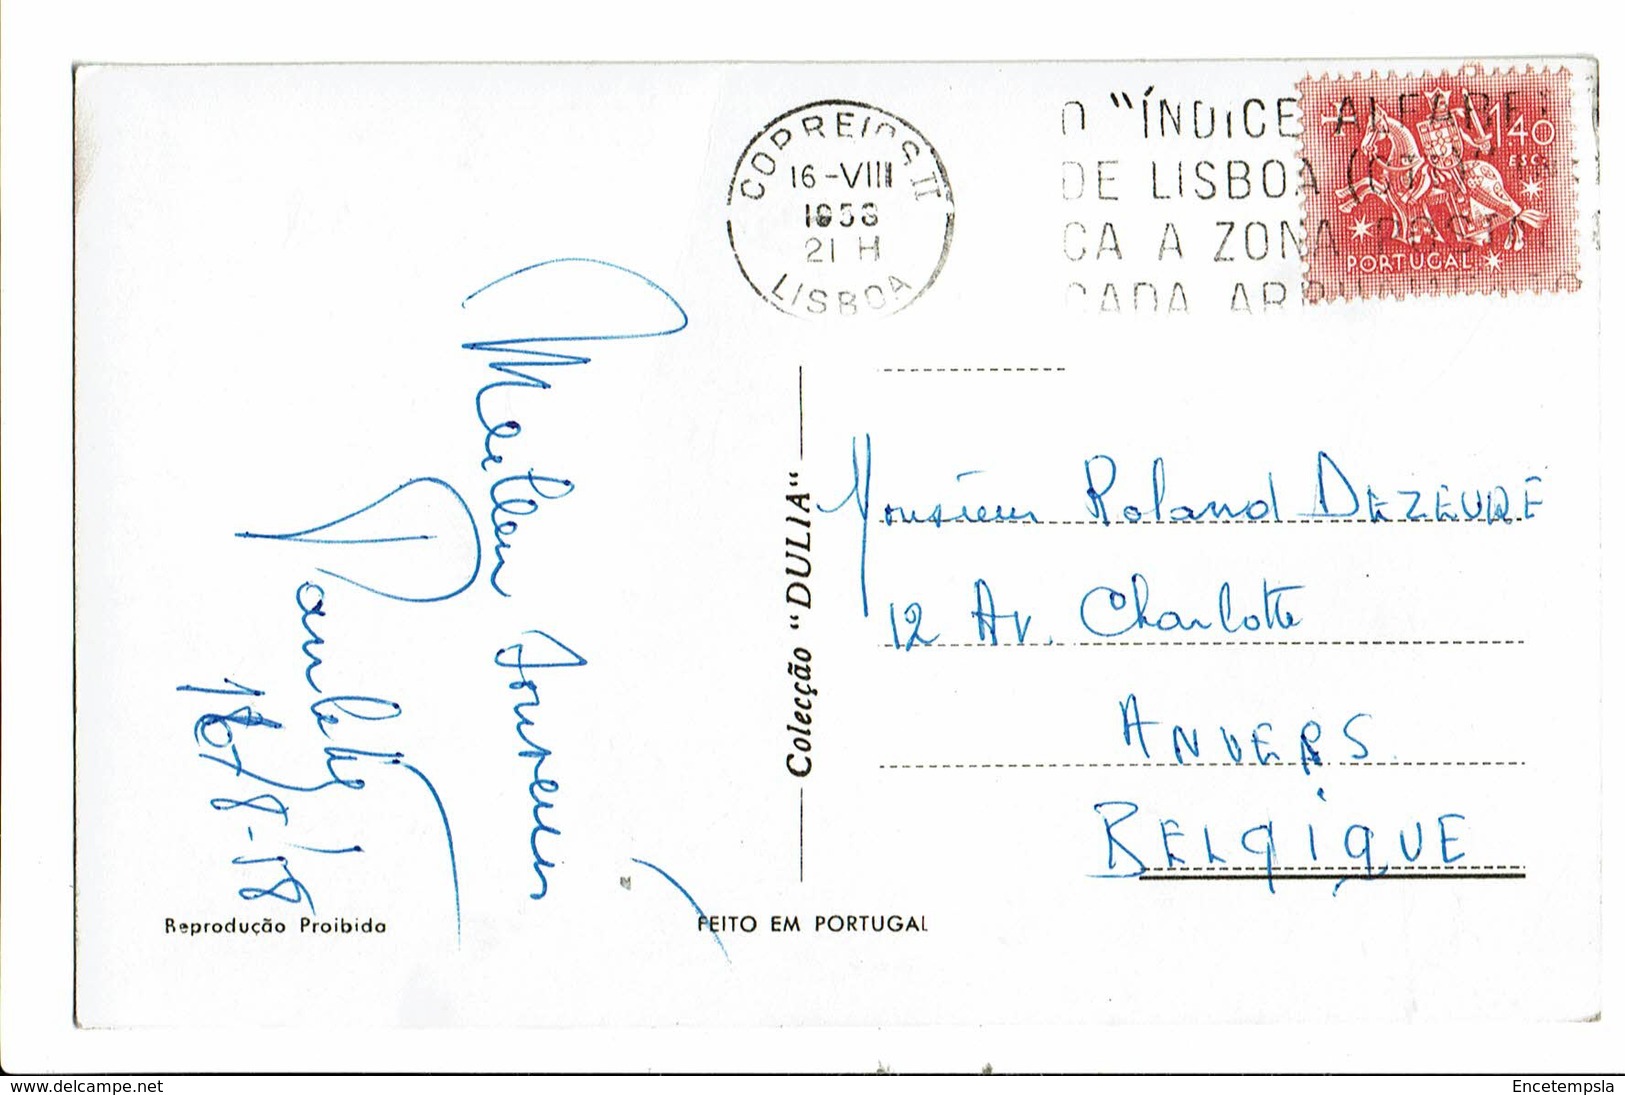 CORREIOS TI
16-VIII
1958
21 H
LISBOA
O "ÍNDICE ALFABET
DE LISBOA (CTT)"
CA A ZONA POSTAL
CADA ARRUAMENTO
1$40
ESC.
PORTUGAL
Meilleur souvenir
16/8-58
Colecção "DULIA"
Monsieur Roland DEZEURE
12 Av. Charlotte
ANVERS.
BELGIQUE
Reprodução Proibida
FEITO EM PORTUGAL
www.delcampe.net
Encetempsla